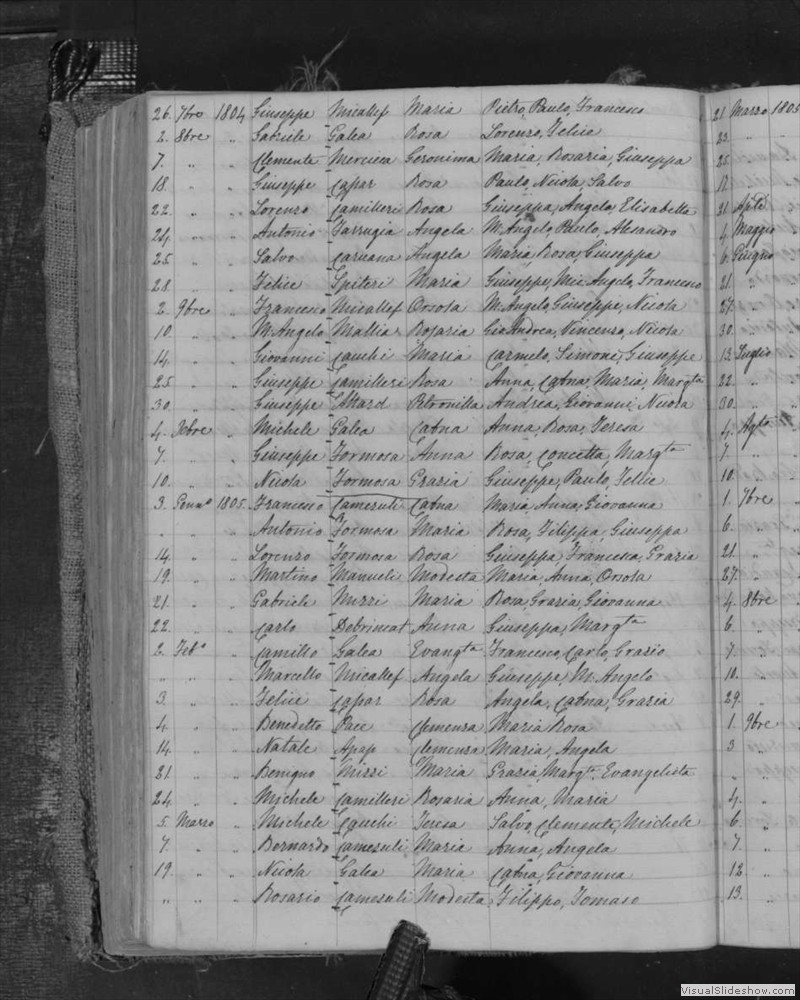 26. 7bre 1804 Giuseppe Micallef Maria Pietro, Paulo, Francesco
2. 8bre " Galea Rosa Lorenzo, Felice
7. " " Clemente Mercieca Geronima Maria, Rosaria, Giuseppa
18. " " Giuseppe Capar Rosa Paulo, Nicola, Salvo
22. " " Lorenzo Camilleri Rosa Giuseppa, Angelo, Elisabetta
24. " " Antonio Farrugia Angela M. Angelo, Paulo, Alesandro
25 " " Salvo Caruana Angela Maria, Rosa, Giuseppa
28 " " Felice Spiteri Maria Giuseppe, Mic. Angelo, Francesco
2. 9bre " Francesco Micallef Orsola M. Angelo, Giuseppe, Nicola
10. " " M. Angelo Mallia Rosaria Gio Andrea, Vincenzo, Nicola
14. " " Giovanni Cauchi Maria Carmelo, Simone, Giuseppe
25 " " Giuseppe Camilleri Rosa Anna, Catna, Maria, Margta
30. " " Giuseppe Attard Petronilla Andrea, Giovanni, Nicola
4. Xbre " Michele Galea Catna Anna, Rosa, Teresa
7. " " Giuseppe Formosa Anna Rosa, Concetta, Margta
10. " " Nicola Formosa Grazia Giuseppe, Paulo, Felice
3. Genno 1805. Francesco Camensuli Catna Maria, Anna, Giovanna
" " " Antonio Formosa Maria Rosa, Filippa, Giuseppa
14. " " Lorenzo Formosa Rosa Giuseppa, Francesca, Grazia
19. " " Martino Manueli Modesta Maria, Anna, Orsola
21. " " Gabriele Mizzi Maria Rosa, Grazia, Giovanna
22. " " Carlo Debrincat Anna Giuseppa, Margta
2. Febo " Camillo Galea Evangta Francesco, Carlo, Grazio
" " " Marcello Micallef Angela Giuseppe, M. Angelo
3. " " Felice Capar Rosa Angela, Catna, Grazia
4. " " Benedetto Pace Clemenza Maria Rosa
14. " " Natale Apap Clemenza Maria, Angela
21 " " Benigno Mizzi Maria Grazia, Margta, Evangelista
24 " " Michele Camilleri Rosaria Anna, Maria
5. Marzo " Michele Cauchi Teresa Salvo, Clemente, Michele
7. " " Bernardo Camensuli Maria Anna, Angela
19. " " Nicola Galea Maria Catna, Giovanna
" " " Rosario Camensuli Modesta Filippo, Tomaso
21. Marzo 1805
23. "
25. "
17. "
21. Aple
4. Maggio
6. Giugno
21. "
27. "
30. "
13. Luglio
22. "
30. "
4. Agto
7 "
10. "
1. 7bre
6. "
21. "
27. "
4. 8bre
6. "
7. "
10. "
29. "
1. 9bre
3 "
" "
4. "
6. "
7. "
12 "
13. "
VisualSlideshow.com